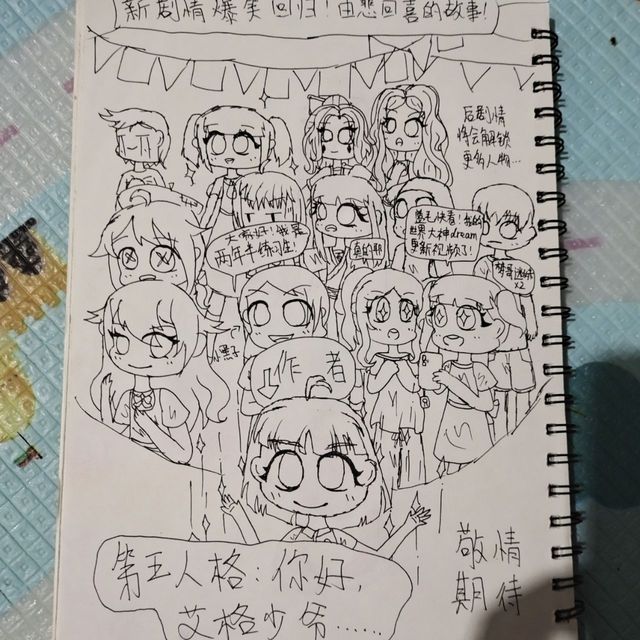 新剧情爆笑回归！由悲回喜的故事！
后剧情
将会解锁
更多人物…
大家好！我是
两年半练习生！
真的耶
羲毛快看！我的
世界大神dream
更新视频了！
替哥迷妹
x2
小黑子
作者
第五人格：你好，
艾格少爷……
敬情
期待